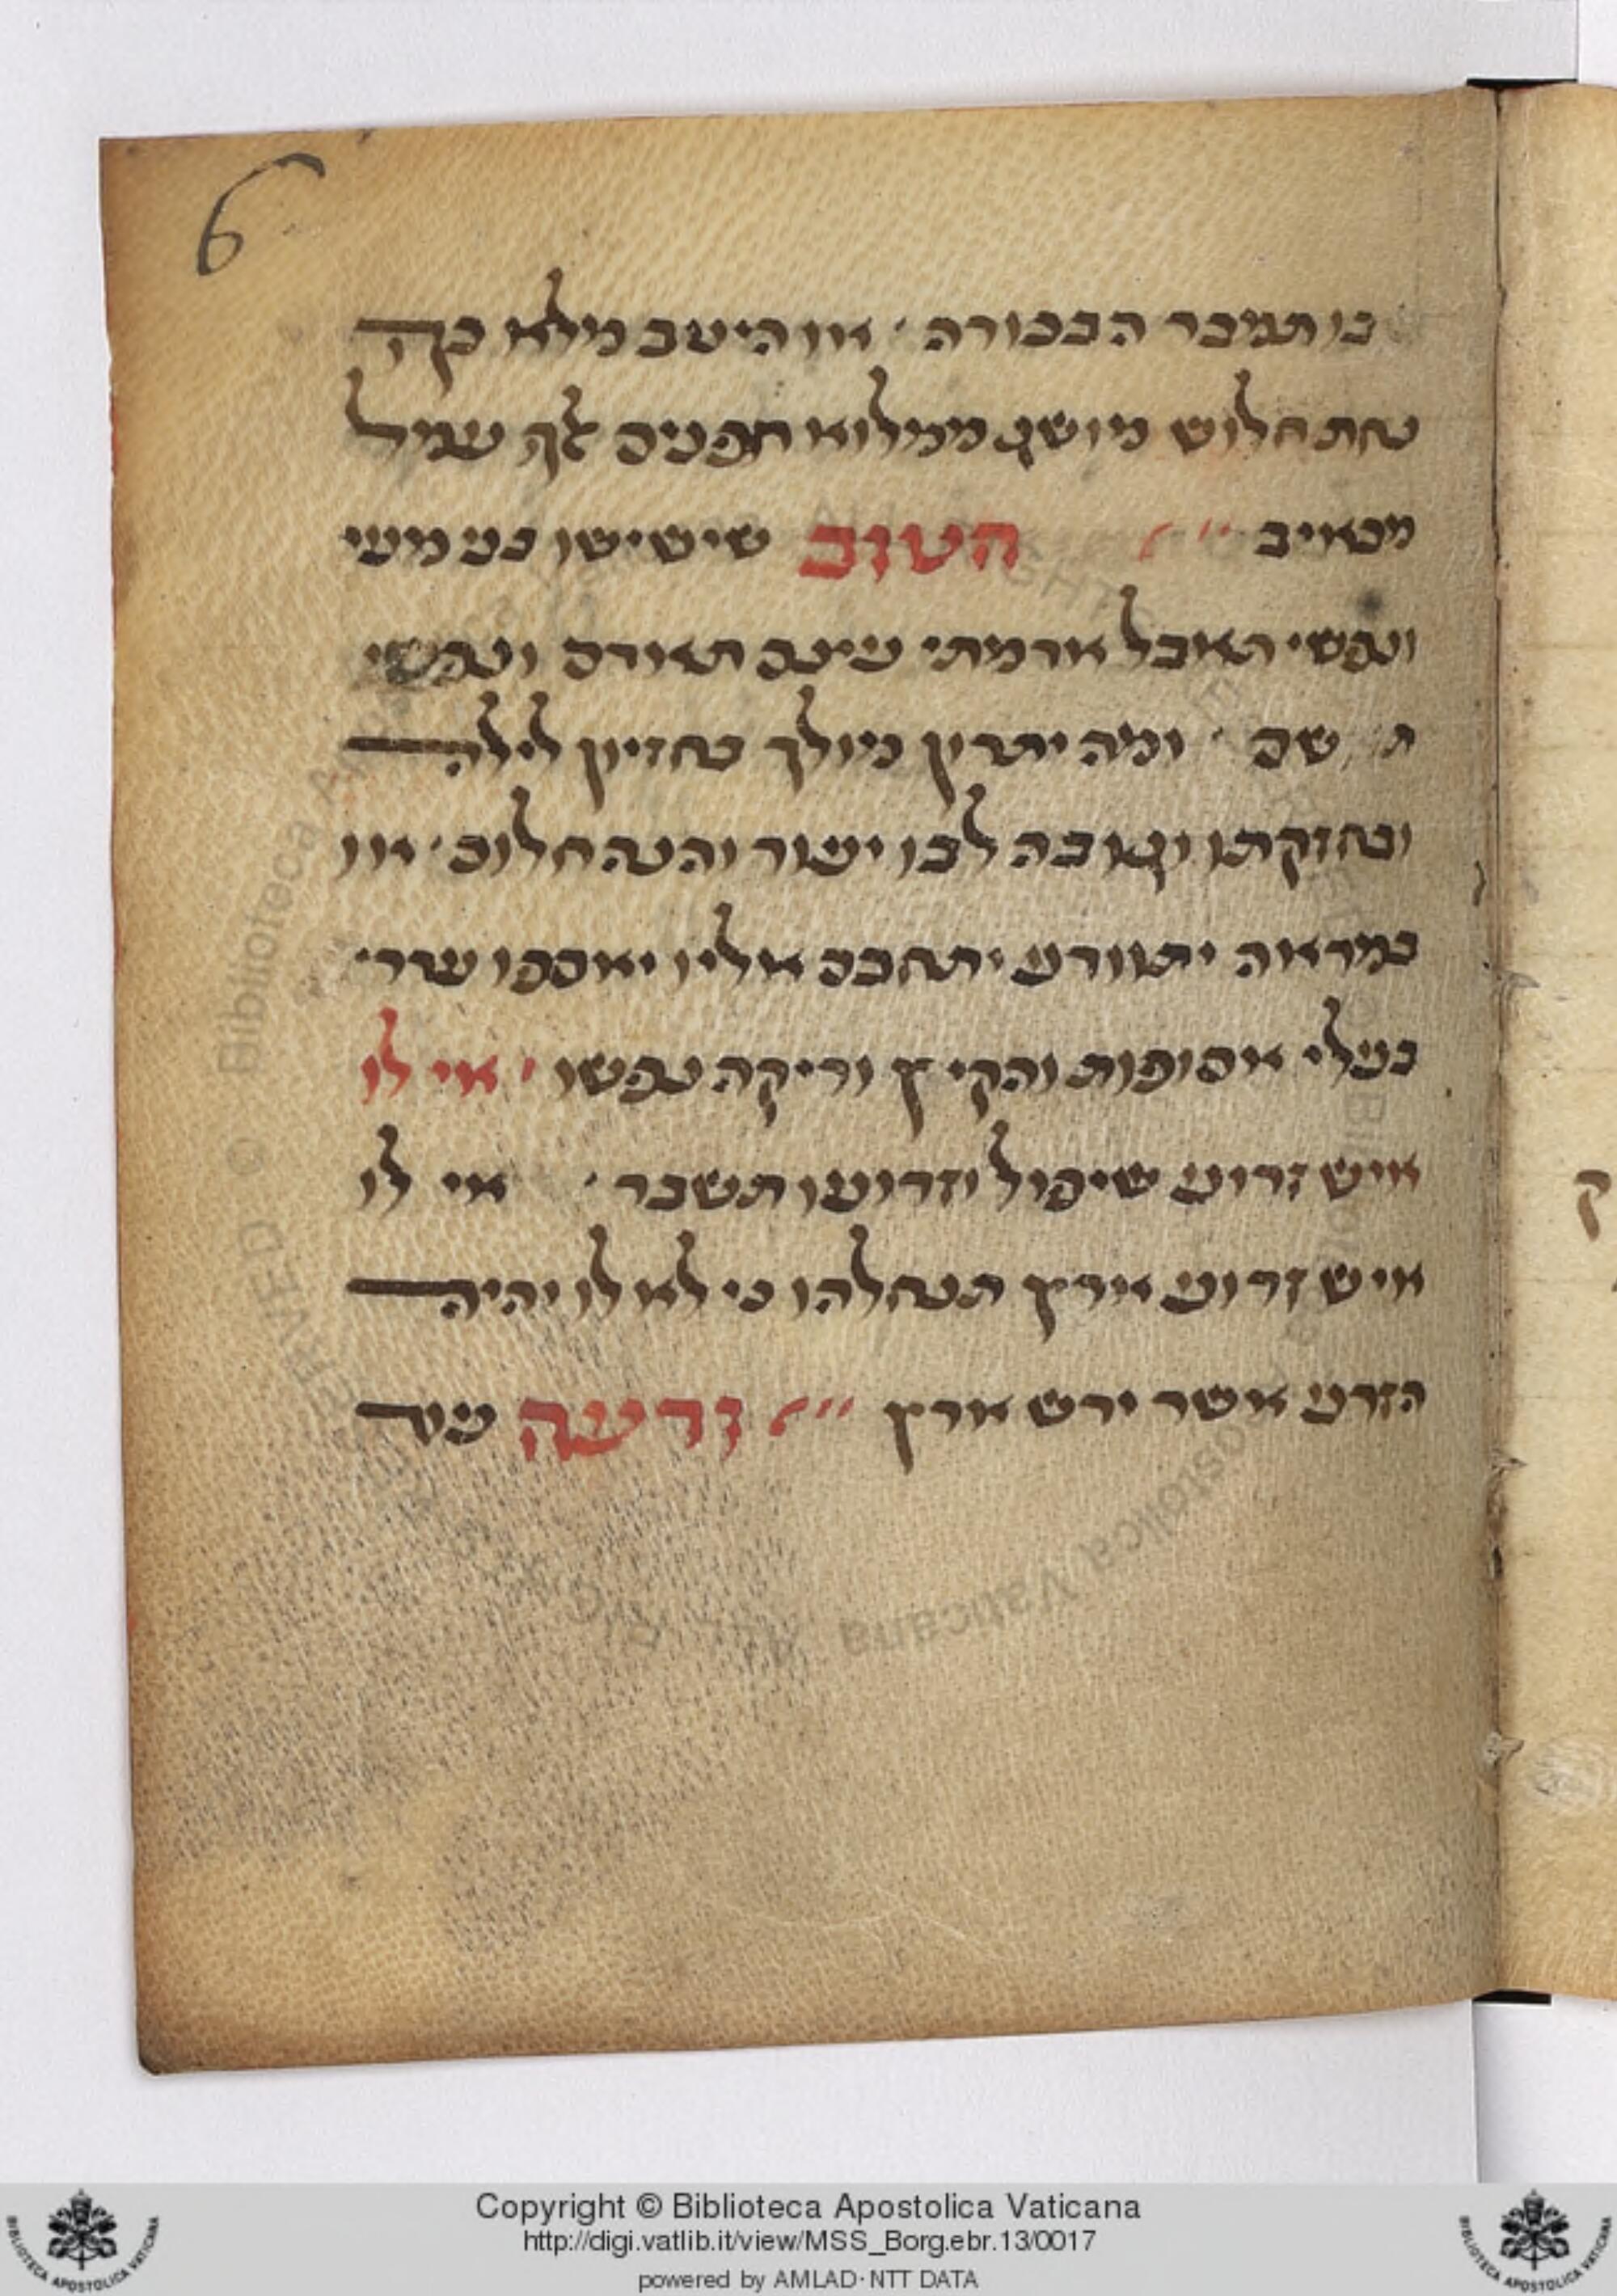 6
בו תמכר הבכורה · או היטב מילא כף
נחת חלוש מושג ממלוא חפנים לך עמל
מכאיב הטוב שישישו בני מעי
ונפשי תאכל אדמתי עינם תאדם ונפשי
שם · ומה יתרון מולך חזיון לילה
וחזקתו וגובה לבו יעור והנה חלום · או
במראה יתוודע יתחכם אליו יאספו שרי
בעלי אסופות והקיץ וריקה נפשו · אי לו
איש זרוע שיפול וזרועו תשבר · אי לו
איש זרוע ארץ תנחלהו כי לא לו יהיה
הזרע אשר ירש ארץ זרעה עוד
Copyright © Biblioteca Apostolica Vaticana
http://digi.vatlib.it/view/MSS_Borg.ebr.13/0017
powered by AMLAD · NTT DATA